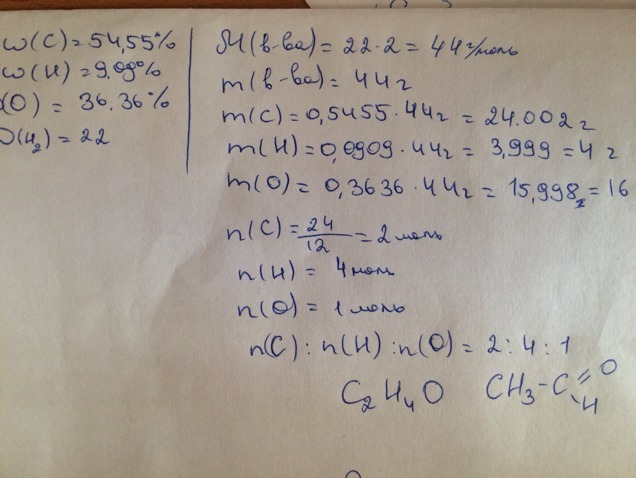 w(C) = 54,55%
w(H) = 9,09%
(O) = 36.36%
D(H₂) = 22
M(в-ва) = 22·2 = 44 г/моль
m(в-ва) = 44 г
m(C) = 0,5455·44г = 24.002 г
m(H) = 0,0909·44г = 3,999 = 4 г
m(O) = 0,3636·44г = 15,998г = 16
n(C) = 24/12 = 2 моль
n(H) = 4 моль
n(O) = 1 моль
n(C) : n(H) : n(O) = 2 : 4 : 1
C₂H₄O CH₃-C=O
H